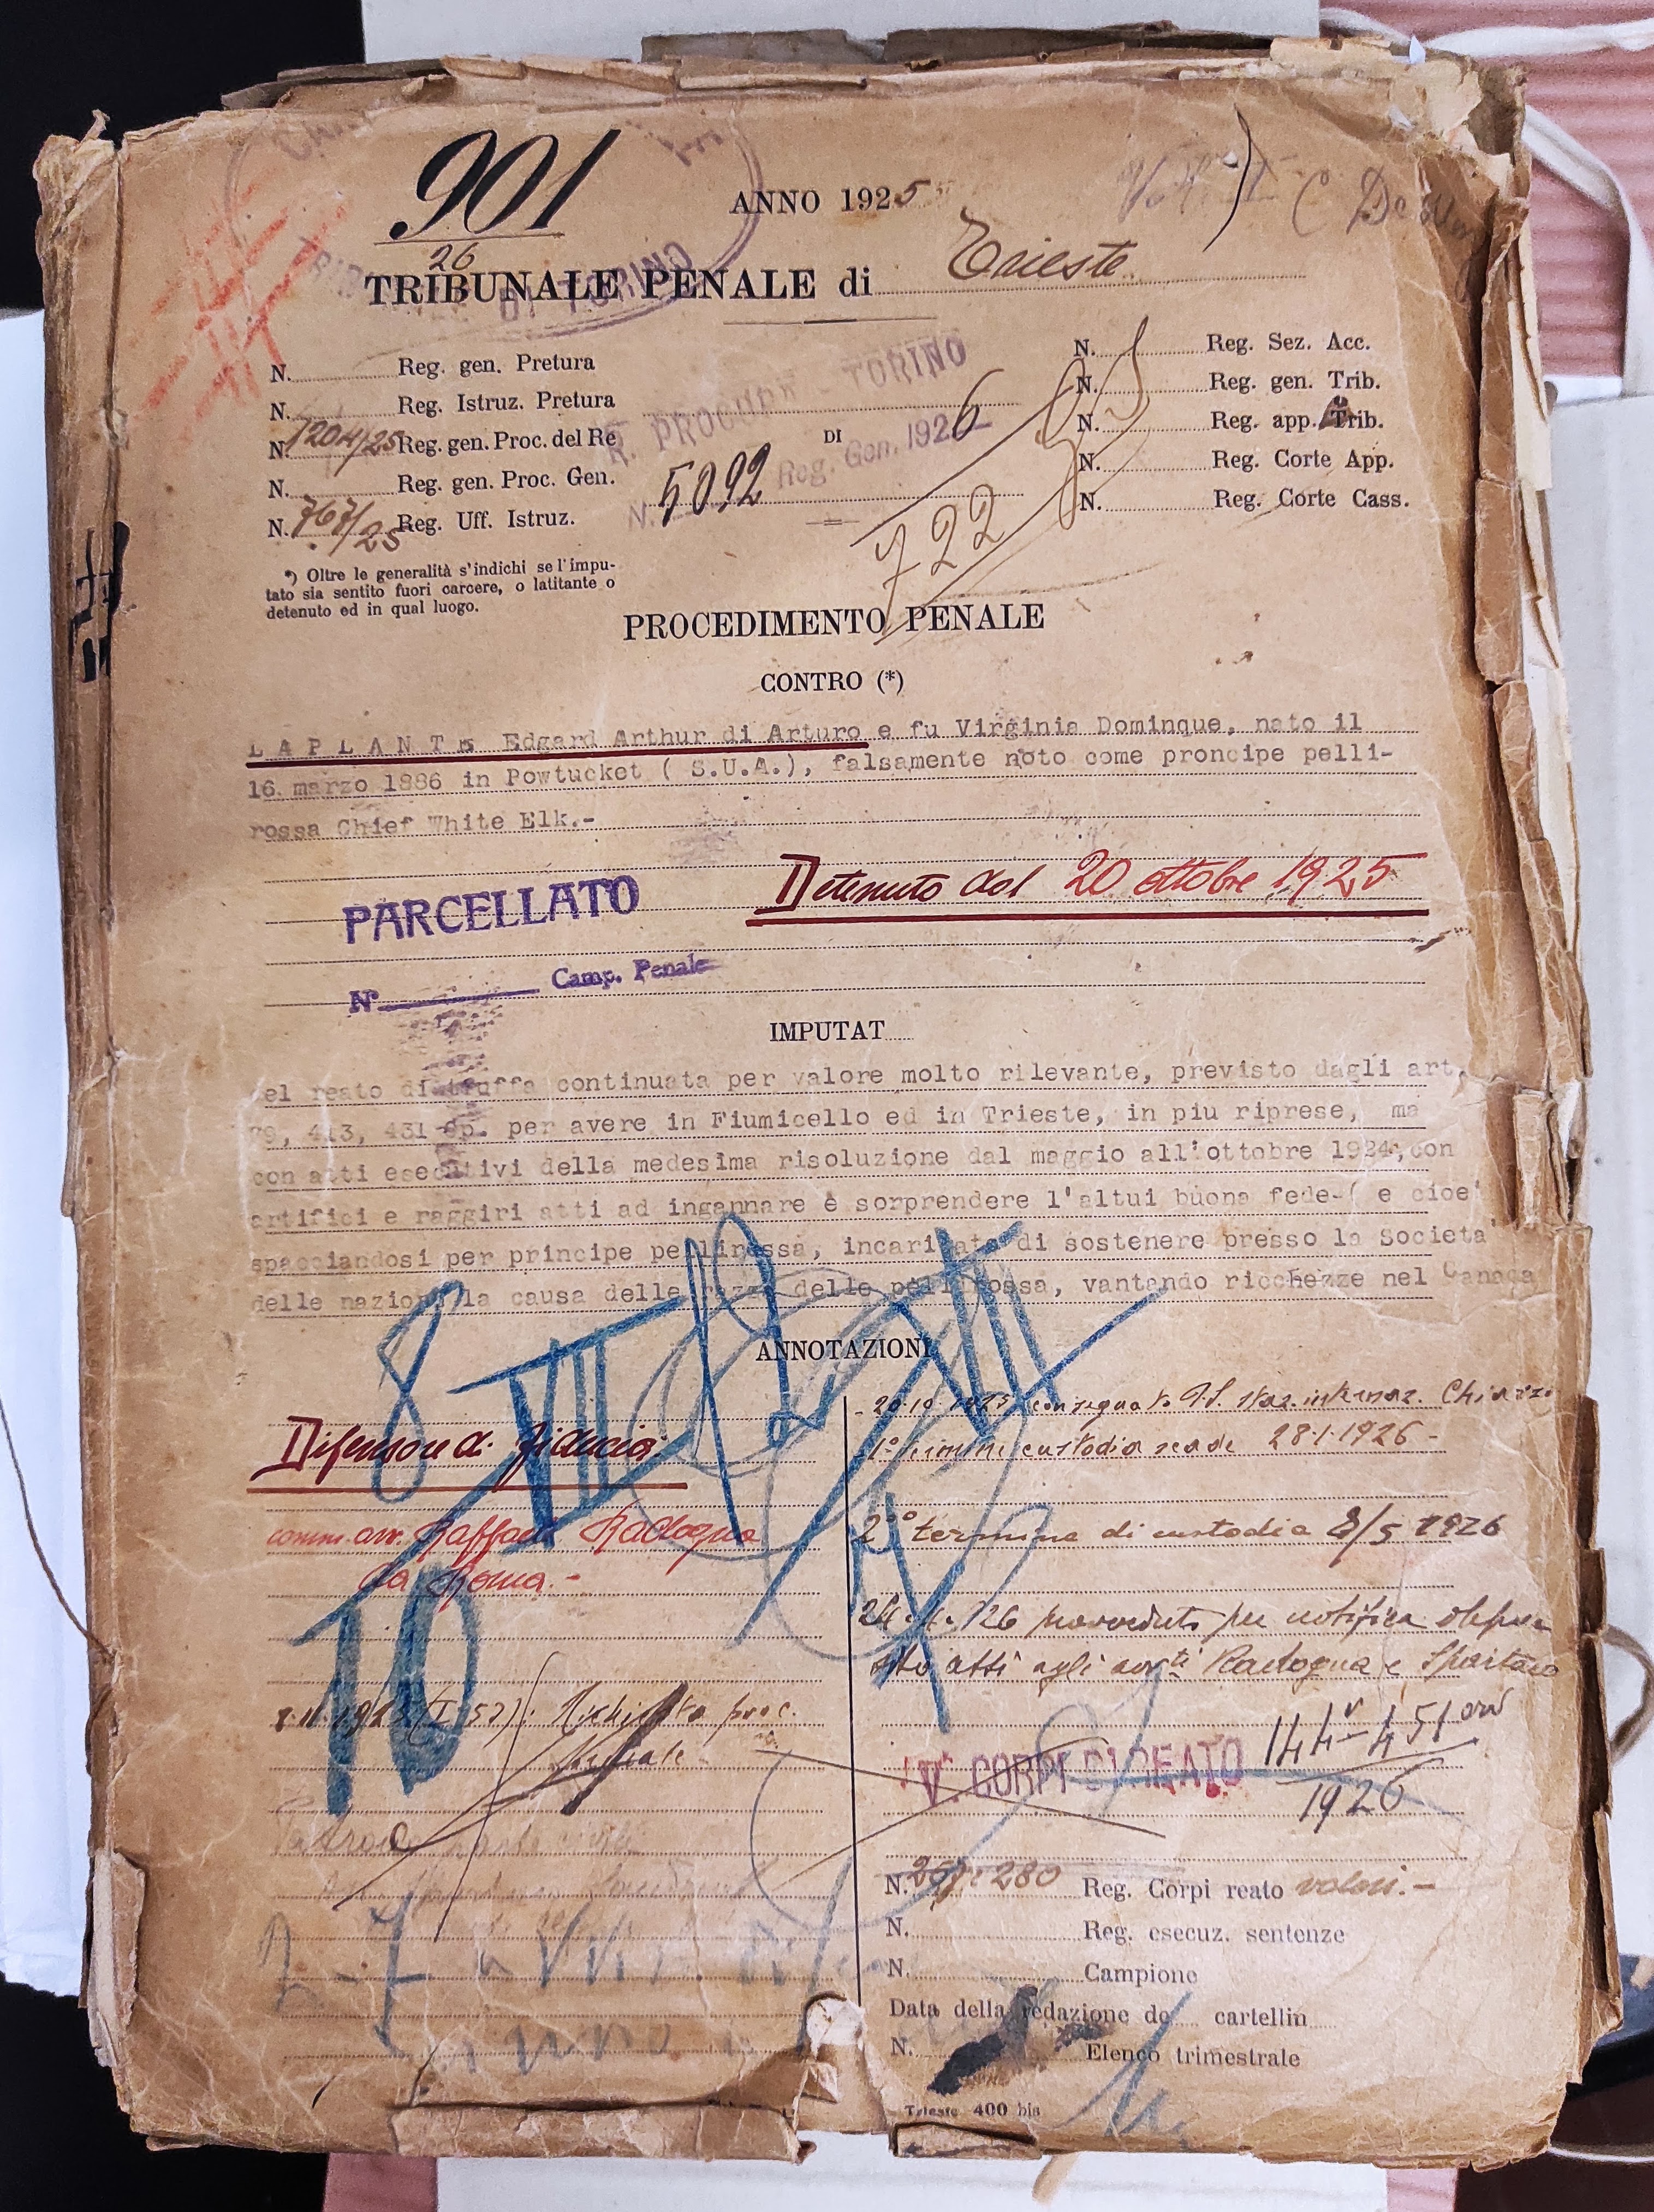 901
26
ANNO 1925
TRIBUNALE PENALE di Trieste
DI TORINO
N. Reg. gen. Pretura
N. Reg. Istruz. Pretura
N. 1204/25 Reg. gen. Proc. del Re
N. Reg. gen. Proc. Gen.
N. 767/25 Reg. Uff. Istruz.
R. PROCURA - TORINO
DI
N. 5092 Reg. Gen. 1926
722
N. Reg. Sez. Acc.
N. Reg. gen. Trib.
N. Reg. app. Trib.
N. Reg. Corte App.
N. Reg. Corte Cass.
*) Oltre le generalità s'indichi se l'impu-
tato sia sentito fuori carcere, o latitante o
detenuto ed in qual luogo.
PROCEDIMENTO PENALE
CONTRO (*)
LAPLANTE Edgard Arthur di Arturo e fu Virginia Dominque, nato il
16 marzo 1886 in Powtucket ( S.U.A.), falsamente noto come proncipe pelli-
rossa Chief White Elk.-
Detenuto dal 20 ottobre 1925
PARCELLATO
N° Camp. Penale
IMPUTAT
del reato di truffa continuata per valore molto rilevante, previsto dagli art.
79, 413, 431 cp. per avere in Fiumicello ed in Trieste, in piu riprese, ma
con atti esecutivi della medesima risoluzione dal maggio all'ottobre 1924, con
artifici e raggiri atti ad ingannare e sorprendere l'altui buona fede-( e cioe'
spacciandosi per principe pellirossa, incaricato di sostenere presso la Societa'
delle nazioni la causa delle razze delle pelli rossa, vantando ricchezze nel Canada
ANNOTAZIONI
8 VIII
10
Difensore di fiducia:
comm. avv. Raffaele Radogna
da Roma.-
20.10.1925 consegnato P.S. staz. internaz. Chiasso
1° termine custodia scade 28.1.1926 -
2° termine di custodia 8/5 1926
provveduto per notifica
atti agli avv.ti Radogna e
V° CORPI DI REATO 144 - 451
1926
N. 280 Reg. Corpi reato valori.-
N. Reg. esecuz. sentenze
N. Campione
Data della redazione de cartellin
N. Elenco trimestrale
Trieste 400 bis